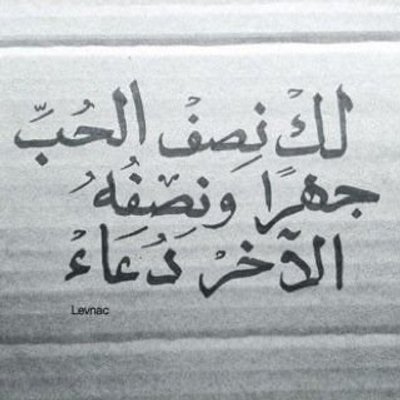 لكْ نِصفْ الحُبِّ
جهرًا وَنِصْفُهُ
الآخرْ دُعَاءْ
Levnac